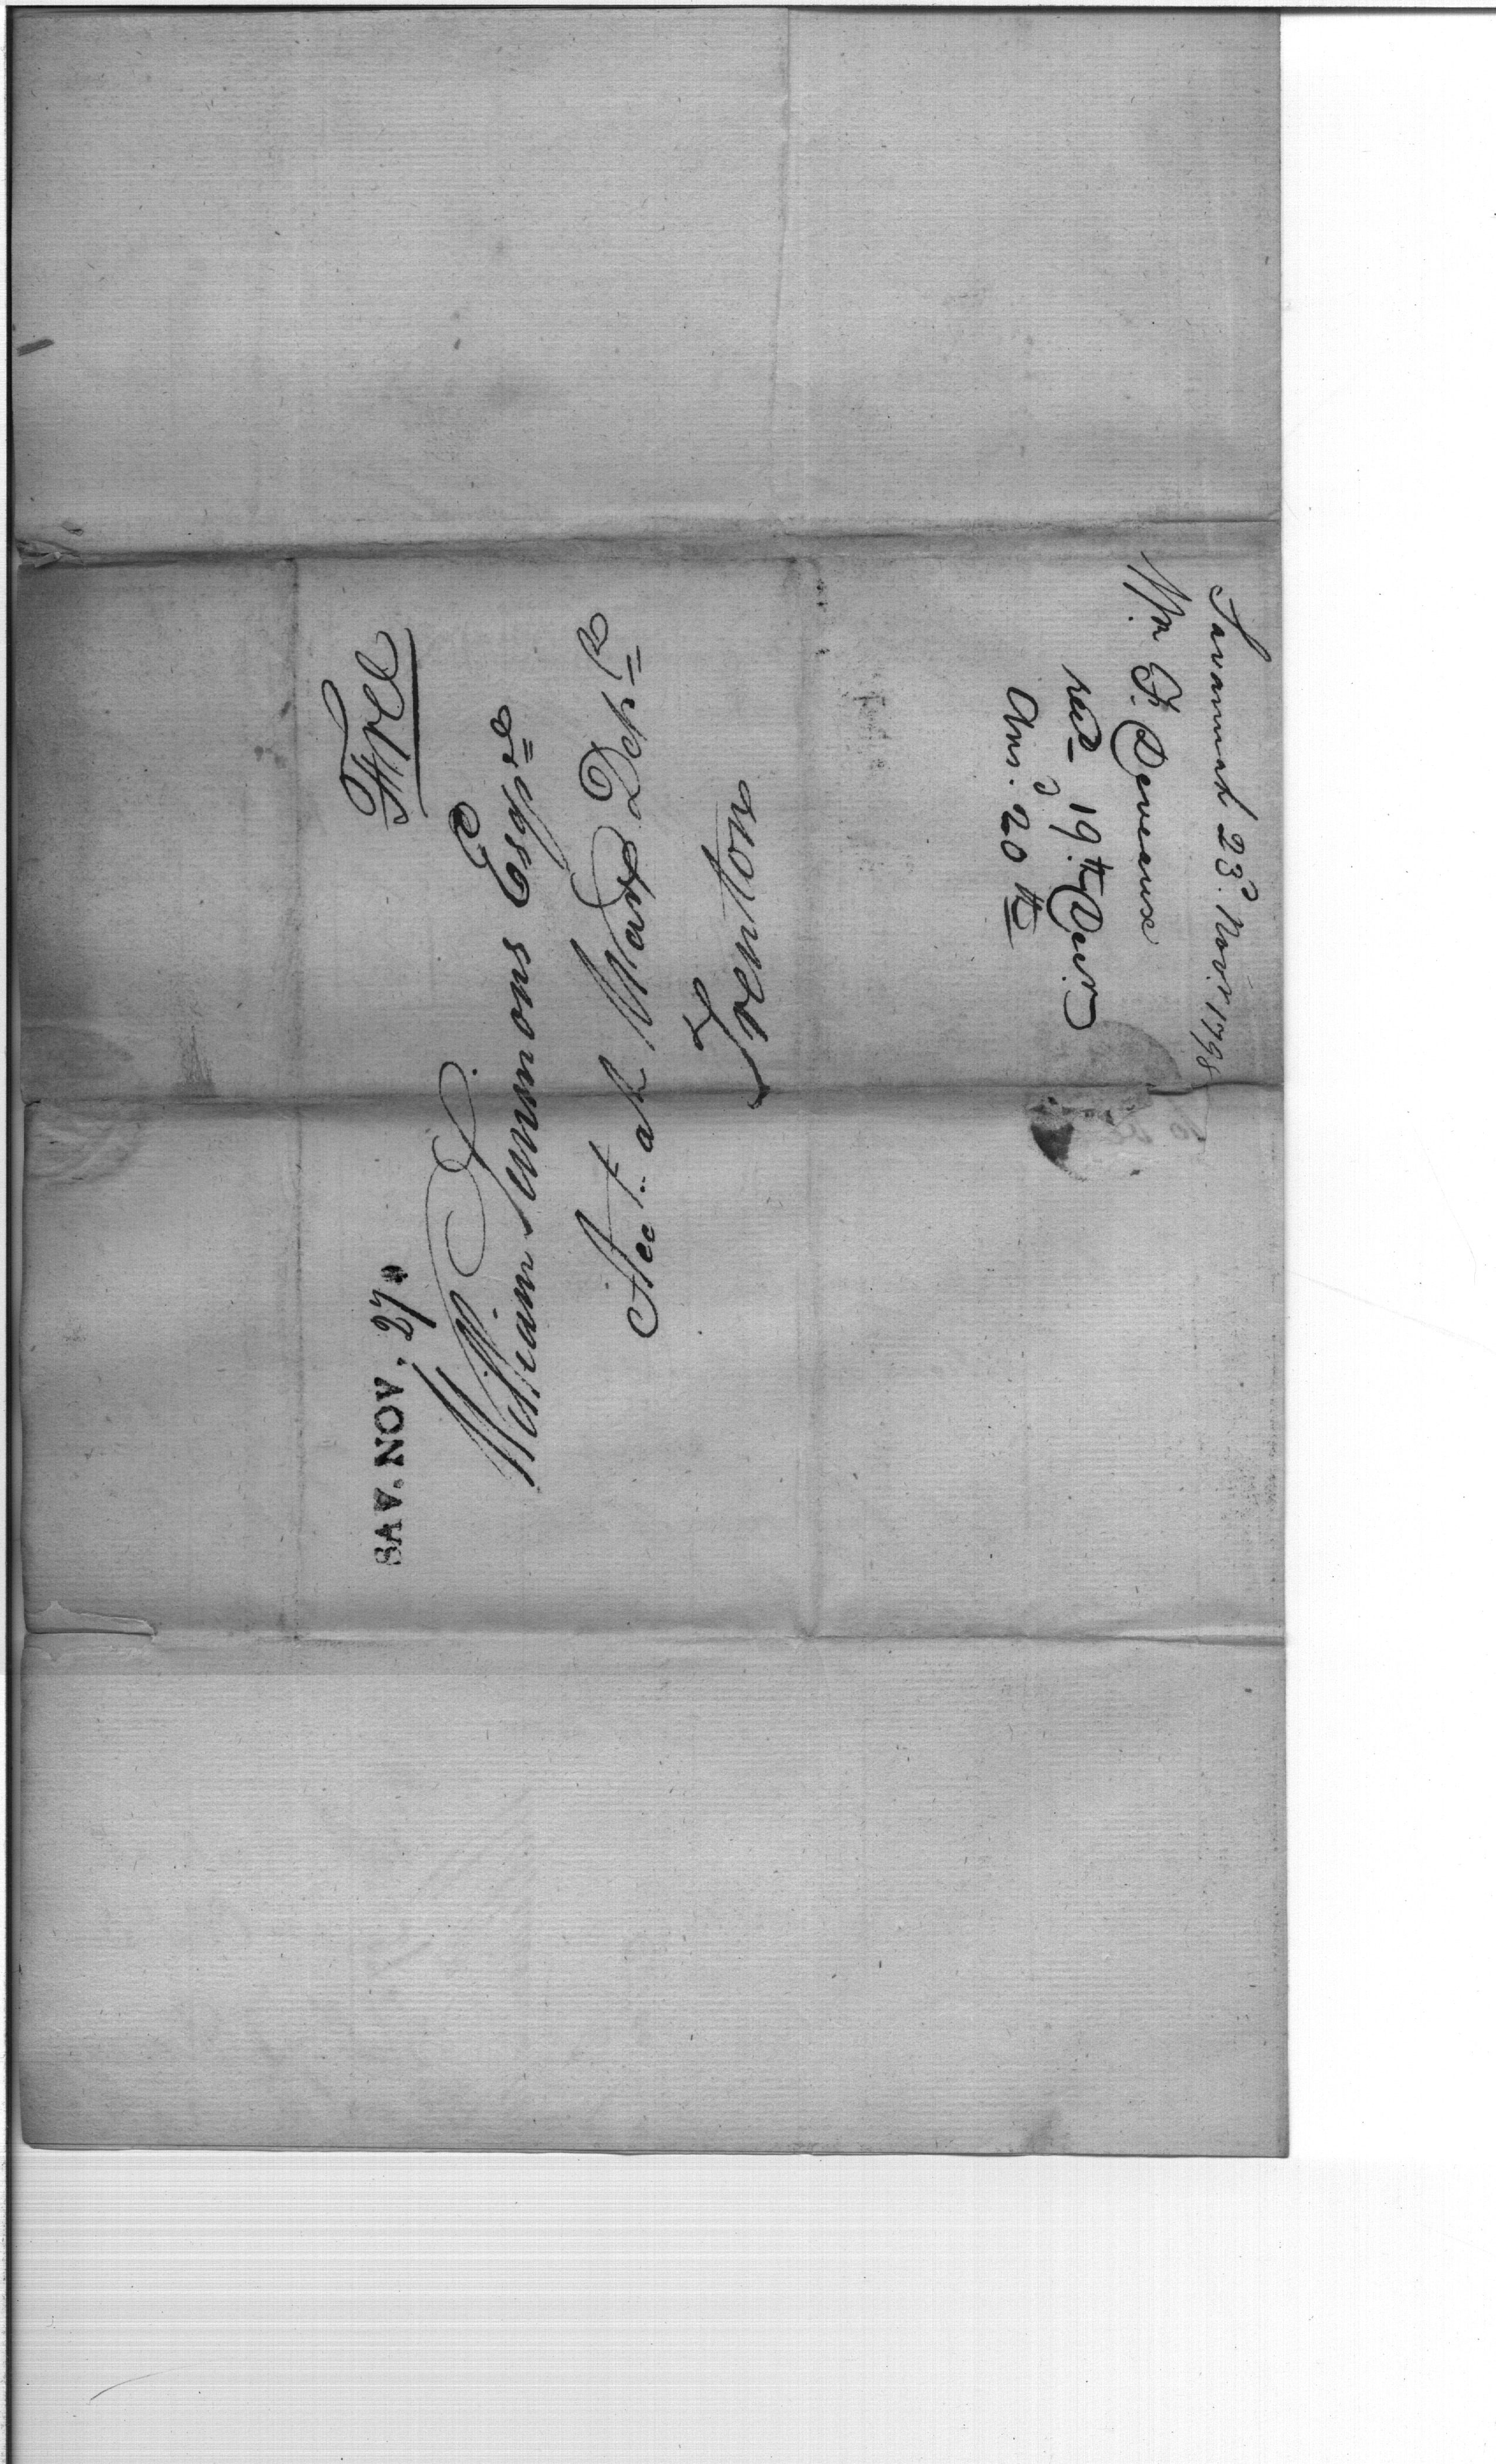 Free
SAV. NOV. 27
William Simmons Esqre
Acct. at War Dept
Trenton
Savannah 23d. Novr 1798
Deveaux
recd 19th Decr
Ansd. 20th